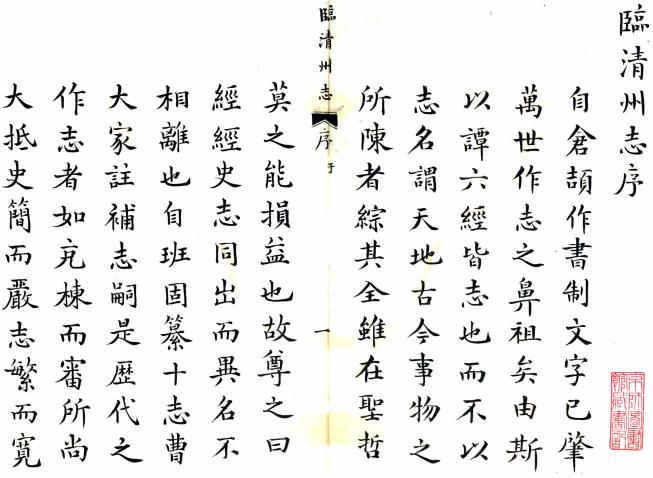 臨清州志序
自倉頡作書制文字已肇
萬世作志之鼻祖矣由斯
以譚六經皆志也而不以
志名謂天地古今事物之
所陳者綜其全雖在聖哲
臨清州志 序 于 一
莫之能損益也故尊之曰
經經史志同出而異名不
相離也自班固纂十志曹
大家註補志嗣是歷代之
作志者如充棟而審所尚
大抵史簡而嚴志繁而寬